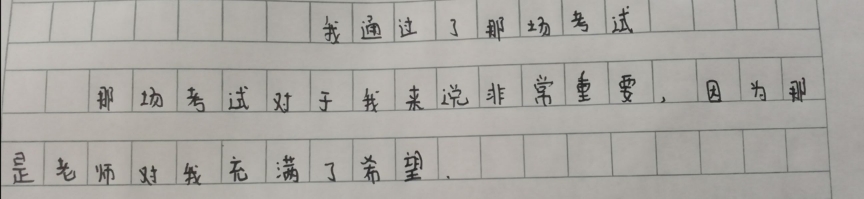 我通过了那场考试
那场考试对于我来说非常重要，因为那
是老师对我充满了希望.